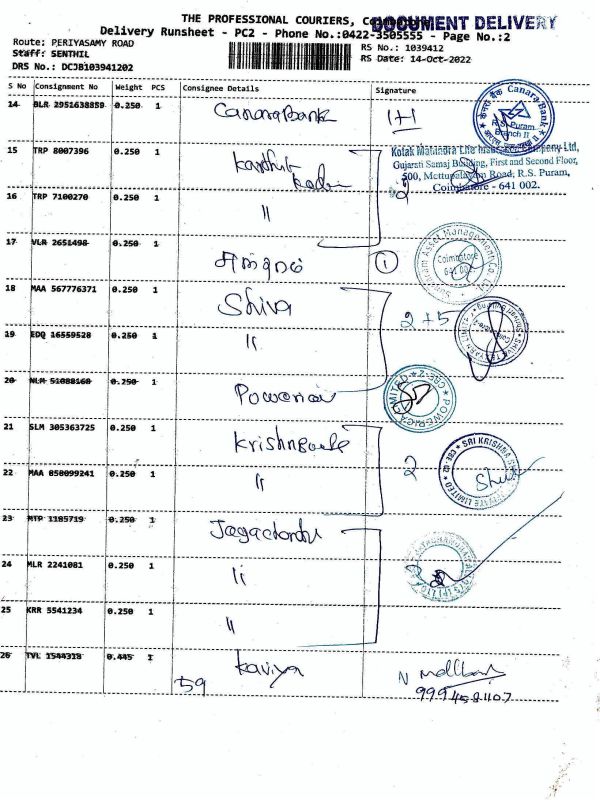 THE PROFESSIONAL COURIERS, Coimbatore
DOCUMENT DELIVERY
Delivery Runsheet - PC2 - Phone No.:0422-3505555 - Page No.:2
Route: PERIYASAMY ROAD
RS No.: 1039412
Staff: SENTHIL
RS Date: 14-Oct-2022
DRS No.: DCJB103941202
S No Consignment No Weight PCS Consignee Details Signature
14 BLR 2951638859 0.250 1 Canara Bank 1+1
Canara Bank
R.S. Puram
Branch II
15 TRP 8007396 0.250 1
Kotak Mahindra Life Insurance Company Ltd,
Gujarati Samaj Building, First and Second Floor,
500, Mettupalayam Road, R.S. Puram,
Coimbatore - 641 002.
2
16 TRP 7100270 0.250 1 "
17 VLR 2651498 0.250 1 1
Asset Management Co.
Coimbatore
641 002
18 MAA 567776371 0.250 1 Shiva 2+5
19 EDQ 16559528 0.250 1 "
20 NLM 51088160 0.250 1
POWERICA LIMITED * CBE-2 *
21 SLM 305363725 0.250 1 2
SRI KRISHNA
PRIVATE LIMITED * CBE-02 *
22 MAA 858099241 0.250 1 "
23 MTP 1185719 0.250 1
24 MLR 2241081 0.250 1 "
25 KRR 5541234 0.250 1 "
26 TVL 1544318 0.445 1 Kaviya
59